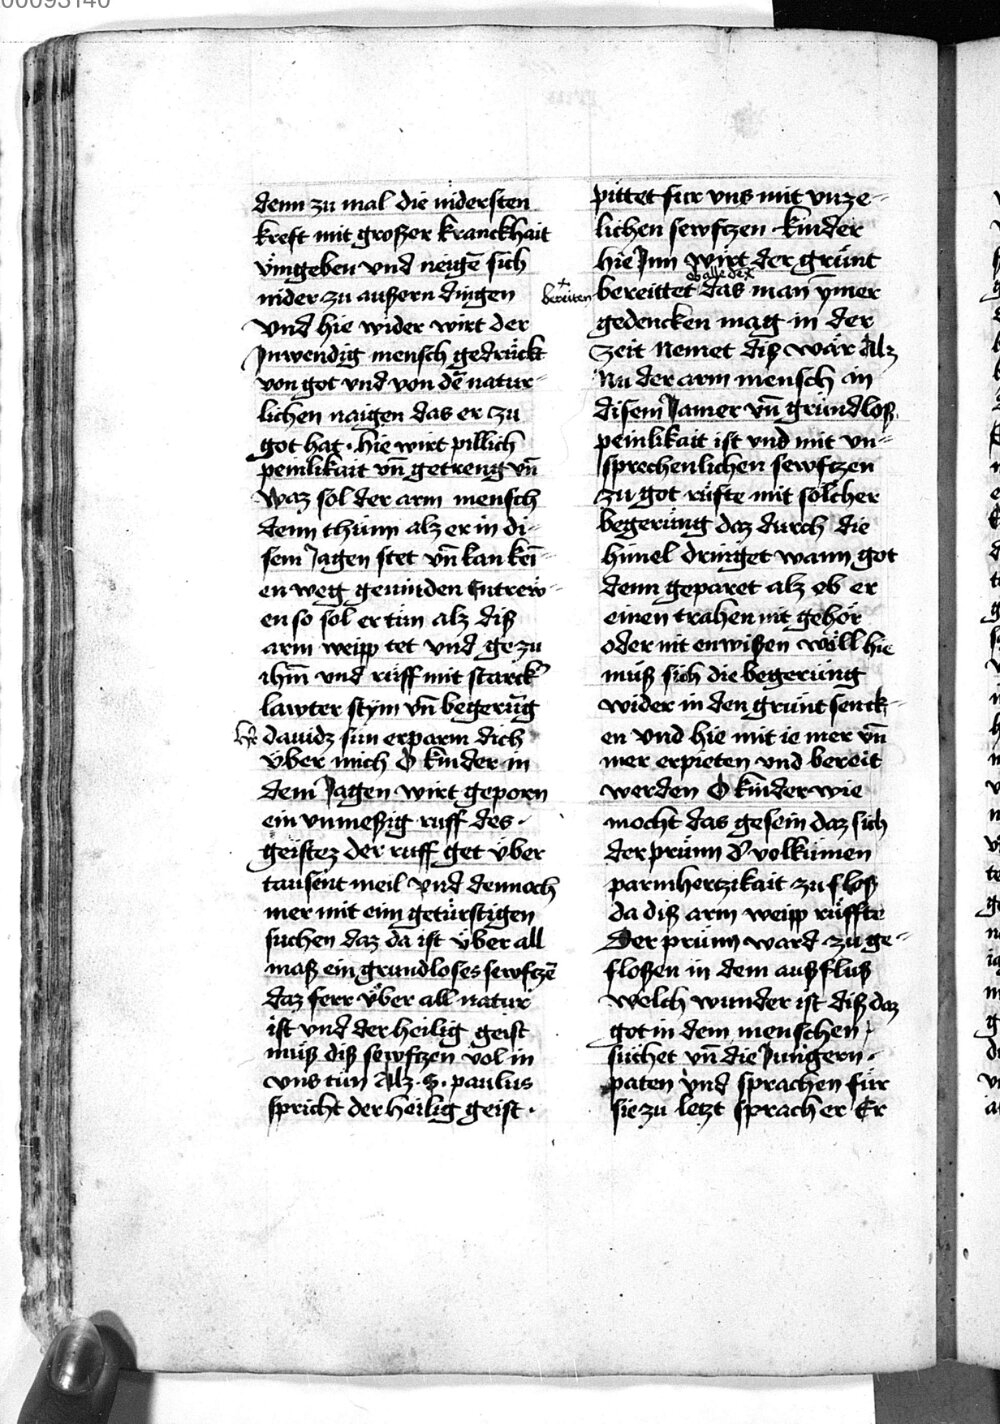 denn zu mal die nidersten
kreft mit großer kranckhait
vmgeben vnd neigē sich
nider zu außern dingen
vnd hie wider wirt der
Jnwendig mensch gedrückt
von got vnd von dē natur-
lichen naigen das er zu
got hat · hie wirt pillich
peinlikait vn̄ getreng vn̄
waz sol der arm mensch
denn thünn alz er in di-
sem Jagen stet vn̄ kan kei-
en weg gevinden Entrew-
en so sol er tün alz diß
arm weipp tet vnd ge zu
ihm̄ vnd rüff mit starck'
lawter stym vn̄ begerūg
dauidz sün erparm dich
über mich O kinder in
dem Jagen wirt geporn
ein vnmeßig ruff des ·
geistez der ruff get über
tausent meil vnd dennoch
mer mit eim getürstigen
suchen daz da ist über all
maß ein grundloses sewfczē
daz ferr über all natur
ist vnd der heilig geist
müß diß sewftzen vol in
vns tün Alz · S · paulus
spricht der heilig geist ·
pittet fur vns mit vnze-
lichen sewfczen · kinder
hie Jnn wirt der grünt
bereiten
ob alle dex
bereittet das man ymer
gedencken mag in der
zeit Nemet diß war Alz
Nu der arm mensch in
disem Jamer vn̄ gründloß
peinlikait ist vnd mit vn-
sprechenlichen sewfczen
zu got rüfte mit sölcher
begerüng daz durch die
himel dringet wann got
denn geparet alz ob er
einen trahen nit gehör
oder nit enwißen wöll hie
müß sich die begerüng
wider in den grunt senck-
en vnd hie mit ie mer vn̄
mer erpieten vnd bereit
werden O kinder wie
mocht das gesein daz sich
der prünn d' volkümen
parmhertzikait zu floß
da diß arm weipp rüffte
Der prünn ward zu ge-
floßen in dem außfluß
welch wunder ist diß daz
got in dem menschen
suchet vn̄ die Jungern ·
paten vnd sprachen für
sie zu letzt sprach er Er